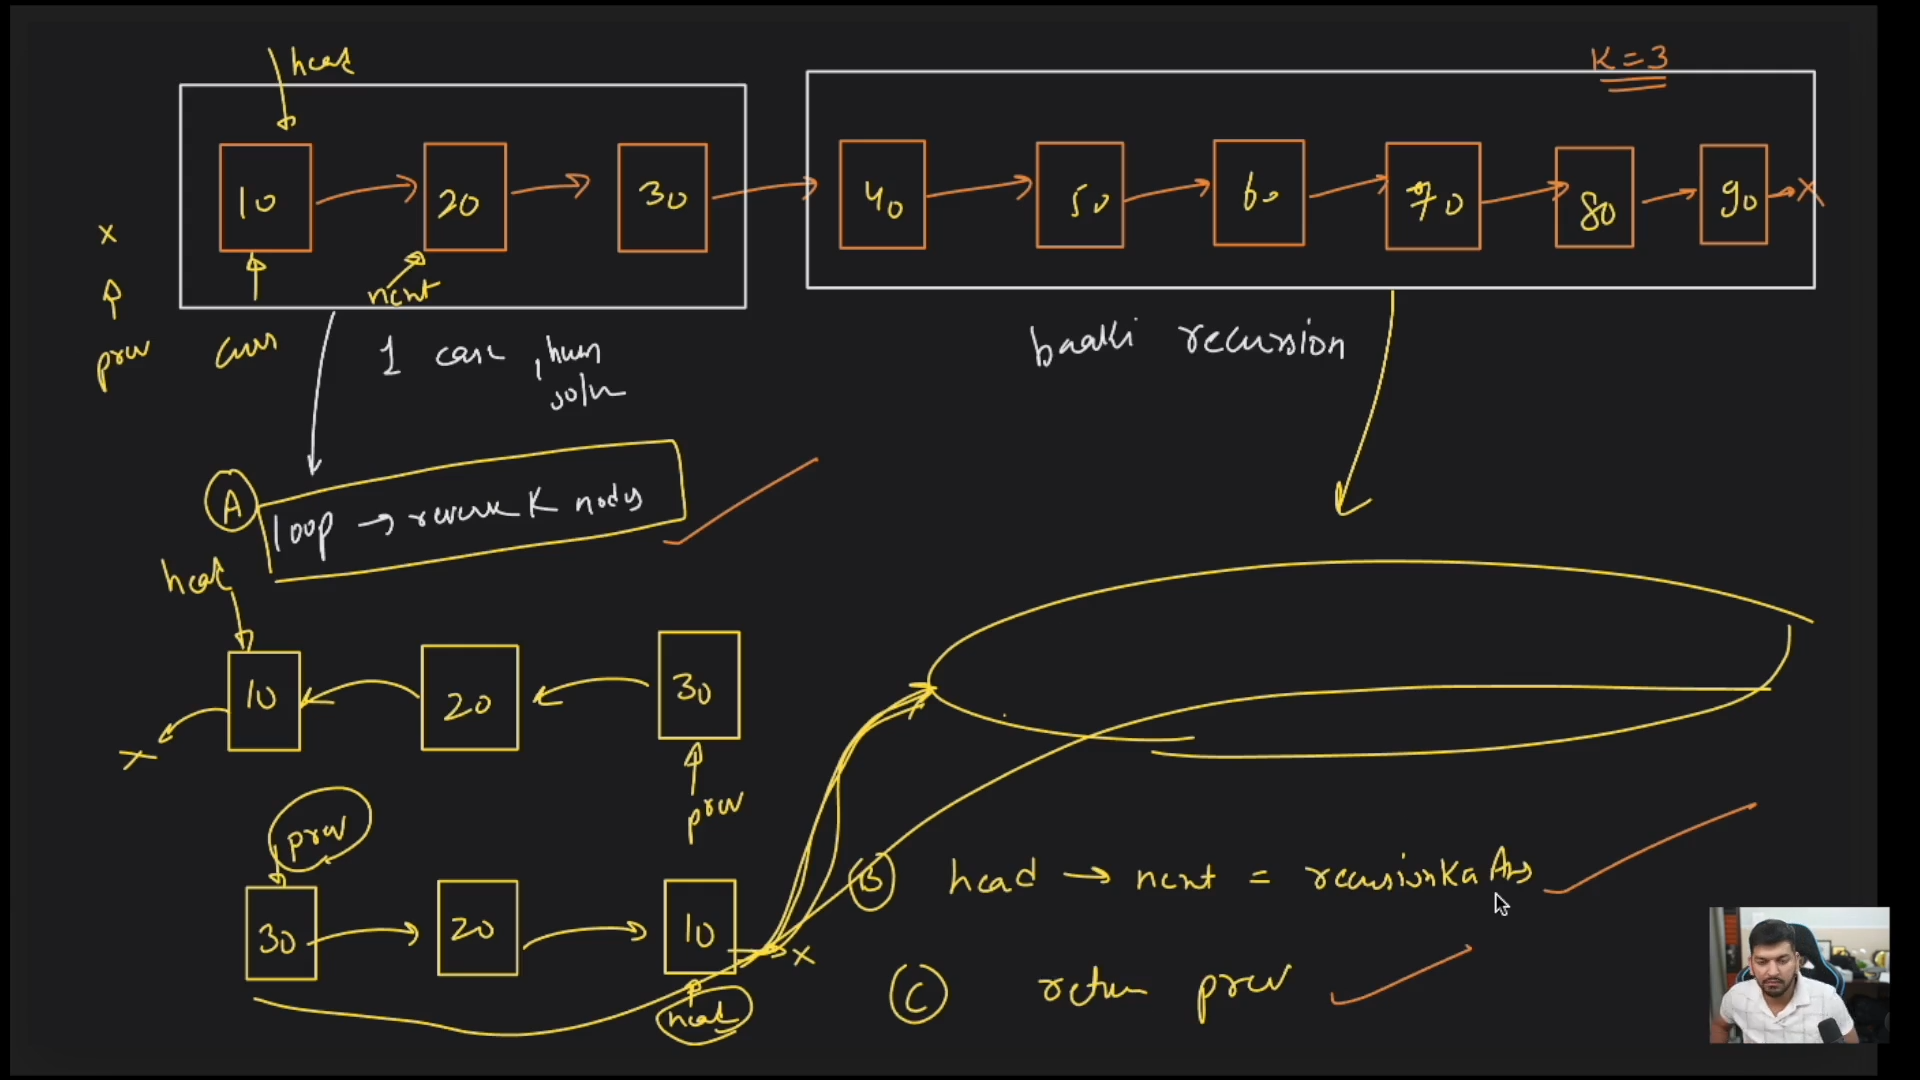 head
K = 3
10 20 30 40 50 60 70 80 90 x
x
next
prev curr
1 case, hum solve
baaki recursion
A loop → reverse K nodes
head
10 20 30
x
prev
prev
30 20 10 x
head
B head → next = recursionKaAns
C return prev